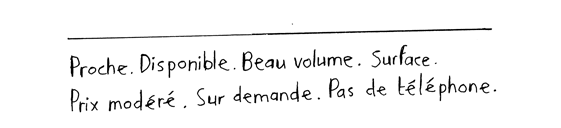 Proche. Disponible. Beau volume. Surface.
Prix modéré. Sur demande. Pas de téléphone.